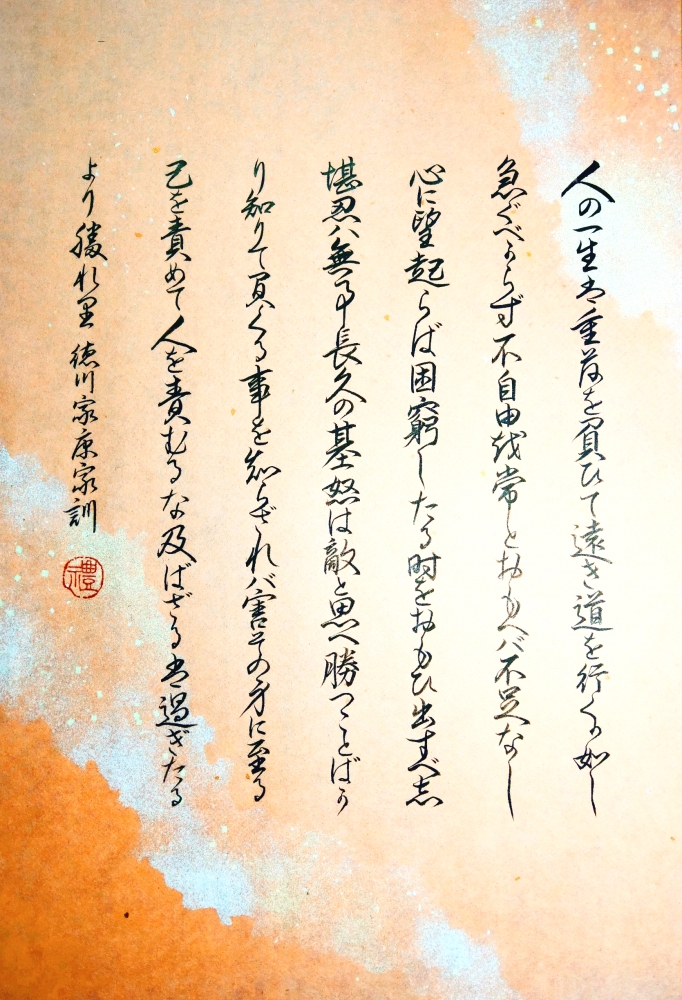 人の一生は重荷を負ひて遠き道を行くが如し
急ぐべからず不自由を常とおもへバ不足なし
心に望起らば困窮したる時をおもひ出すべ志
堪忍ハ無事長久の基怒は敵と思へ勝つことばか
り知りて負くる事を知らざれバ害その身に至る
己を責めて人を責むるな及ばざるは過ぎたる
より勝れり 徳川家康家訓